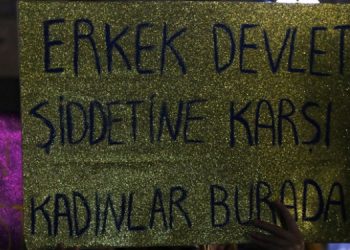 ERKEK DEVLET
ŞİDDETİNE KARŞI
KADINLAR BURADA